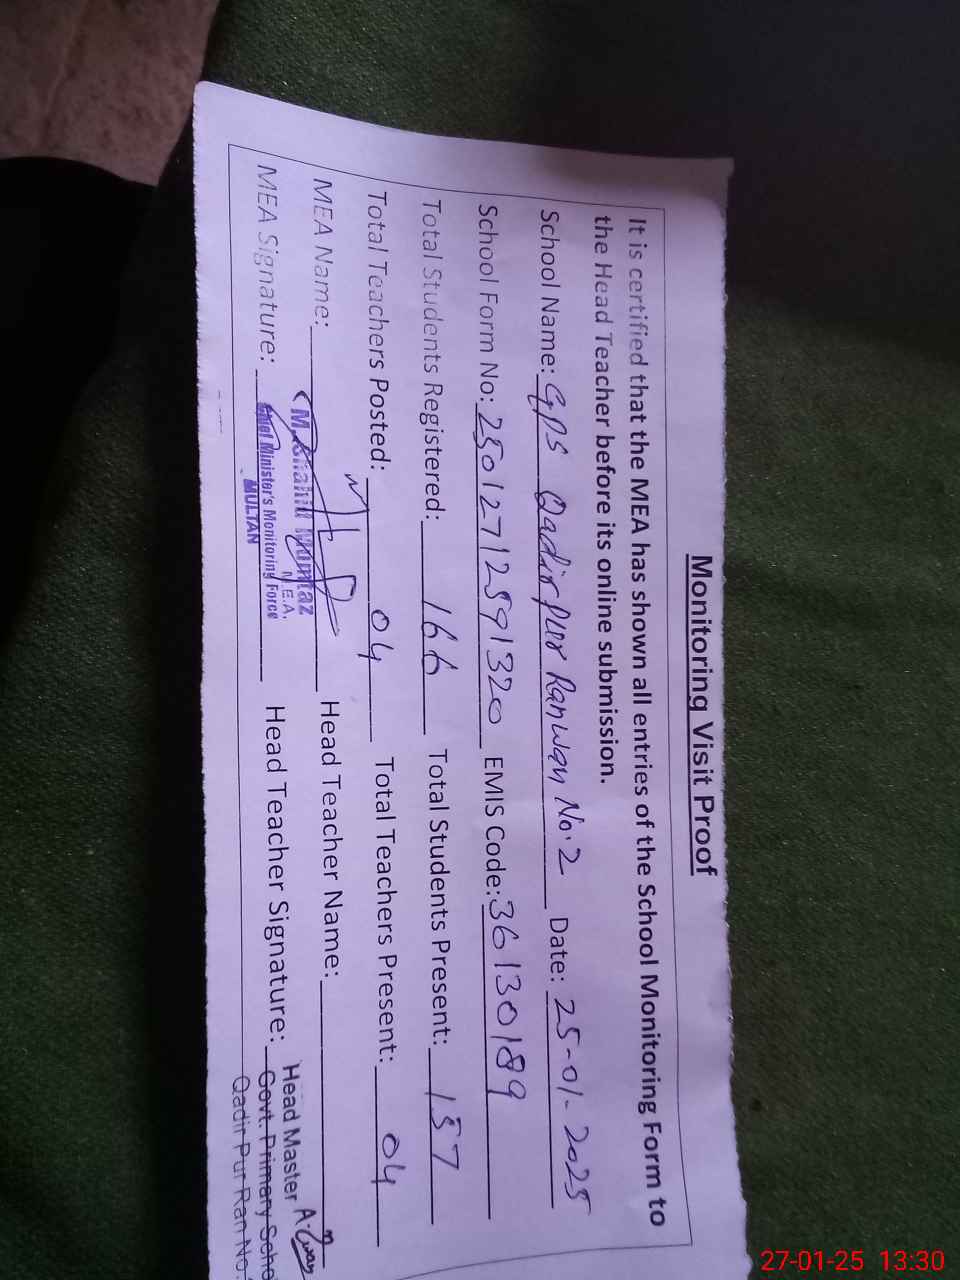 Monitoring Visit Proof
It is certified that the MEA has shown all entries of the School Monitoring Form to
the Head Teacher before its online submission.
School Name: GPS Qadirpur Ranwan No.2 Date: 25-01-2025
School Form No: 25012712591320 EMIS Code: 36130189
Total Students Registered: 166 Total Students Present: 157
Total Teachers Posted: 04 Total Teachers Present: 04
MEA Name: Head Teacher Name:
(M. Shahid Mumtaz
M.E.A.
MEA Signature: Head Teacher Signature:
Chief Minister's Monitoring Force
MULTAN
Head Master
Govt. Primary Scho
Qadir Pur Ran No.
27-01-25 13:30